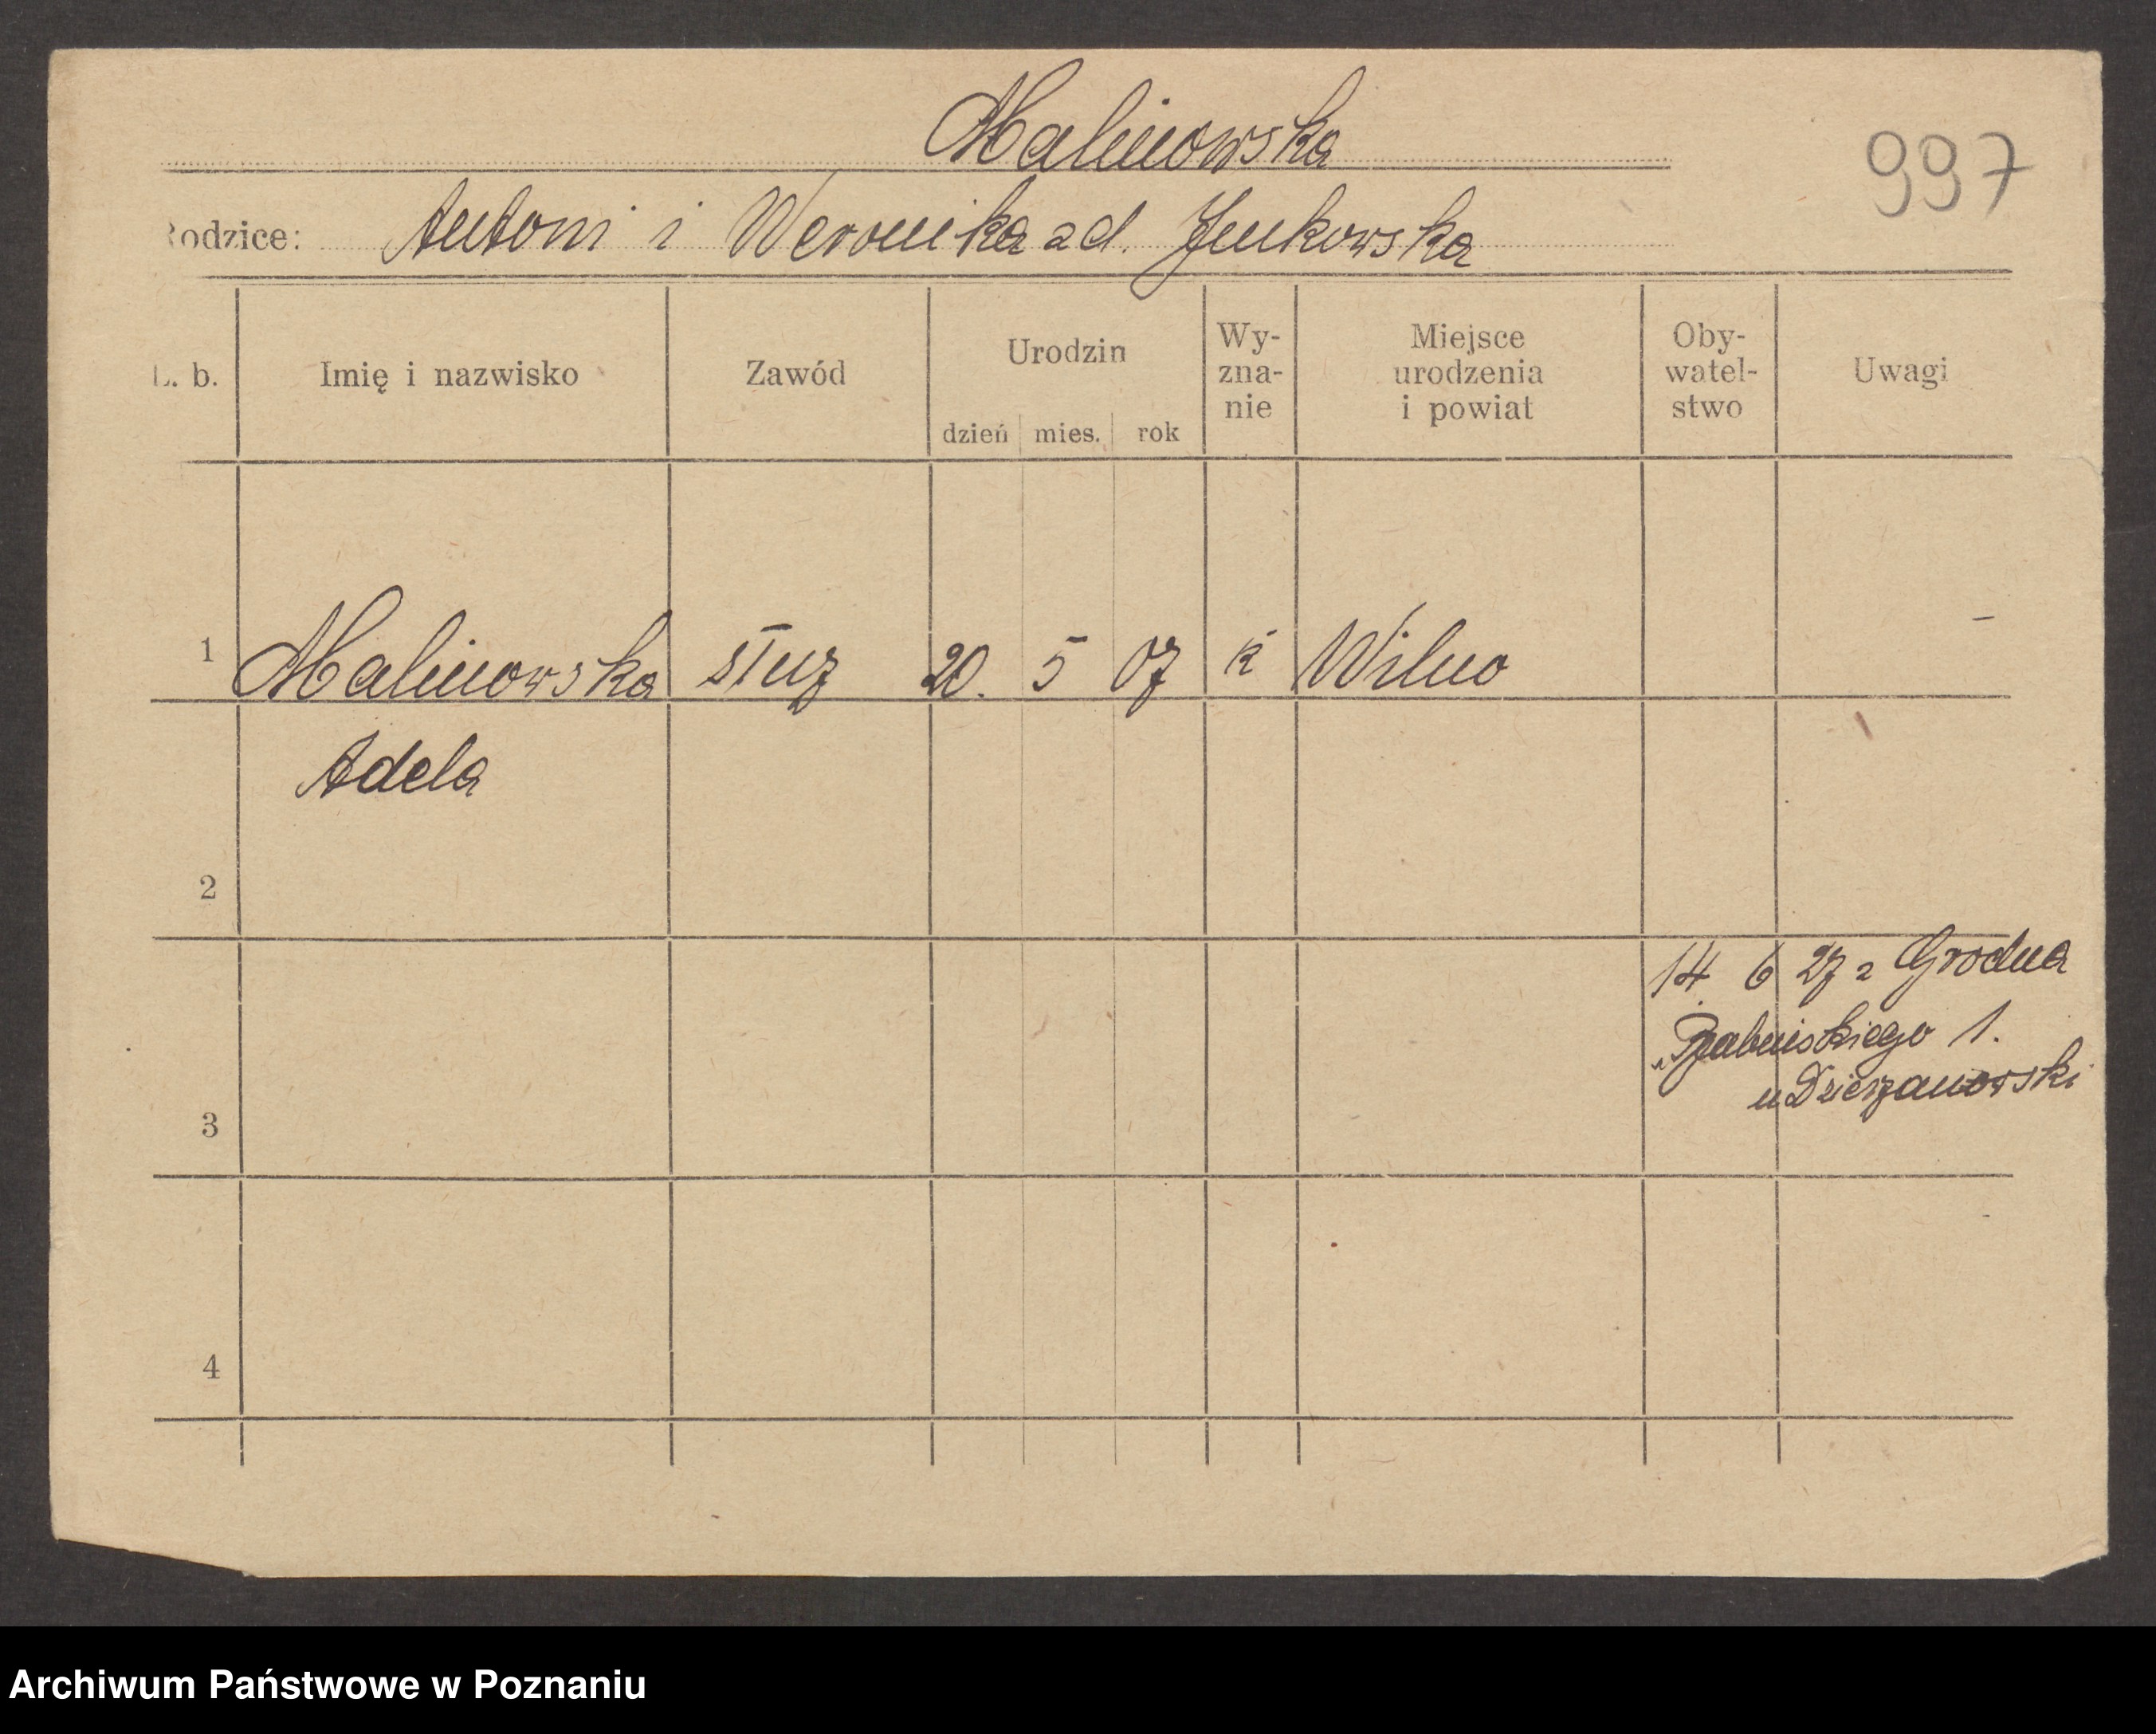 Malinowska
997
Rodzice: Antoni i Weronika z d. Junkowska
L. b. Imię i nazwisko Zawód Urodzin dzień mies. rok Wy-zna-nie Miejsce urodzenia i powiat Oby-watel-stwo Uwagi
1 Malinowska służ 20. 5 07 k Wilno
Adela
2
14. 6 27 z Grodna
1.
u Dzierzanowski
3
4
Archiwum Państwowe w Poznaniu